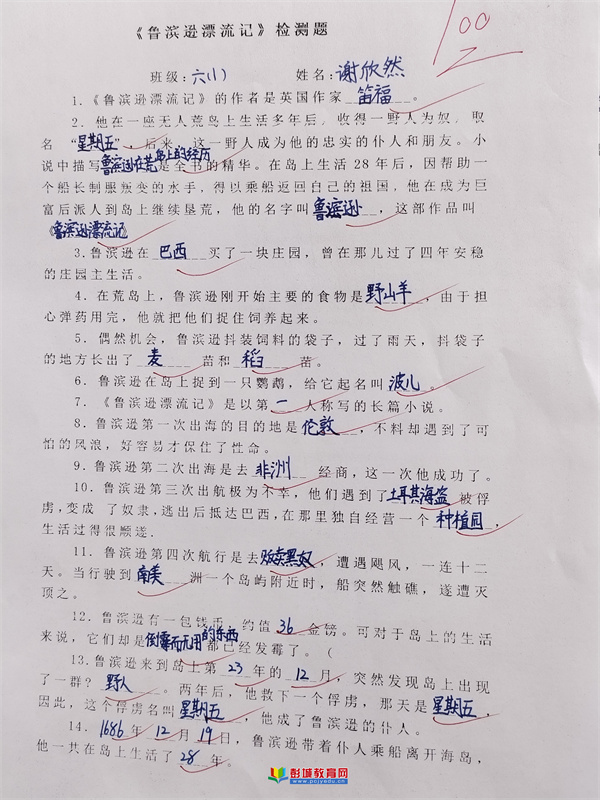 《鲁滨逊漂流记》检测题
100
班级:六(1) 姓名:谢欣然
1.《鲁滨逊漂流记》的作者是英国作家 笛福 。
2.他在一座无人荒岛上生活多年后,收得一野人为奴,取
名 "星期五",后来,这一野人成为他的忠实的仆人和朋友。小
说中描写鲁滨逊在荒岛上的经历是全书的精华。在岛上生活28年后,因帮助一
个船长制服叛变的水手,得以乘船返回自己的祖国,他在成为巨
富后派人到岛上继续垦荒,他的名字叫鲁滨逊,这部作品叫
《鲁滨逊漂流记》
3.鲁滨逊在 巴西 买了一块庄园,曾在那儿过了四年安稳
的庄园主生活。
4.在荒岛上,鲁滨逊刚开始主要的食物是野山羊,由于担
心弹药用完,他就把他们捉住饲养起来。
5.偶然机会,鲁滨逊抖装饲料的袋子,过了雨天,抖袋子
的地方长出了 麦 苗和 稻 苗。
6.鲁滨逊在岛上捉到一只鹦鹉,给它起名叫 波儿 。
7.《鲁滨逊漂流记》是以第 一 人称写的长篇小说。
8.鲁滨逊第一次出海的目的地是 伦敦 ,不料却遇到了可
怕的风浪,好容易才保住了性命。
9.鲁滨逊第二次出海是去 非洲 经商,这一次他成功了。
10.鲁滨逊第三次出航极为不幸,他们遇到了土耳其海盗被俘
虏,变成 了奴隶,逃出后抵达巴西,在那里独自经营一个 种植园,
生活过得很顺遂.
11.鲁滨逊第四次航行是去贩卖黑奴,遭遇飓风,一连十二
天。当行驶到 南美 洲一个岛屿附近时,船突然触礁,遂遭灭
顶之。
12.鲁滨逊有一包钱币,约值 36 金镑。可对于岛上的生活
来说,它们却是倒霉而无用的东西都已经发霉了。(
13.鲁滨逊来到岛上第 23 年的 12 月,突然发现岛上出现
了一群? 野人 。两年后,他救下一个俘虏,那天是星期五,
因此,这个俘虏名叫星期五,他成了鲁滨逊的仆人。
14.1686年 12 月 19 日,鲁滨逊带着仆人乘船离开海岛,
他一共在岛上生活了 28 年。
彭城教育网
www.pcjyedu.cn